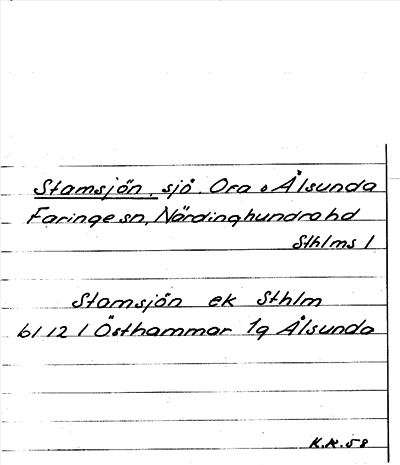 Stamsjön, sjö. Ora o Ålsunda
Faringe sn, Närdinghundra hd
Sthlms l
Stamsjön ek Sthlm
bl 12 l Östhammar 1q Ålsunda
K.K. 58